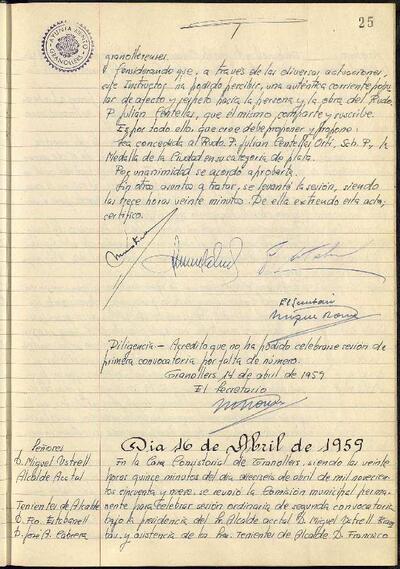 25
AYUNTAMIENTO
GRANOLLERS
granollerenses.
Considerando que, a través de las diversas actuaciones,
este Instructor ha podido percibir, una auténtica corriente popu-
lar de afecto y respeto hacia la persona y la obra del Rvdo.
P. Julián Centelles, que él mismo comparte y suscribe.
Es por todo ello, que cree debe proponer y propone:
Sea concedida al Rvdo. P. Julián Centelles Ortí, Sch. P., la
Medalla de la Ciudad en su categoría de plata.
Por unanimidad se acordó aprobarla.
Sin otros asuntos a tratar, se levantó la sesión, siendo
las trece horas veinte minutos. De ella extiendo esta acta,
certifico.
El Secretario
Diligencia.- Acredito que no ha podido celebrarse sesión de
primera convocatoria por falta de número.
Granollers 14 de abril de 1959
El Secretario
Señores
D. Miguel Ustrell
Alcalde Acctal
Tenientes de Alcalde
D. Fco. Estabanell
D. José A. Cabrera
Dia 16 de Abril de 1959
En la Casa Consistorial de Granollers, siendo las veinte
horas quince minutos del dia dieciseis de abril de mil novecien-
tos cincuenta y nueve, se reunió la Comisión municipal perma-
nente para celebrar sesión ordinaria de segunda convocatoria
bajo la presidencia del Sr. Alcalde acctal D. Miguel Ustrell
y asistencia de los Sres. Tenientes de Alcalde D. Francisco